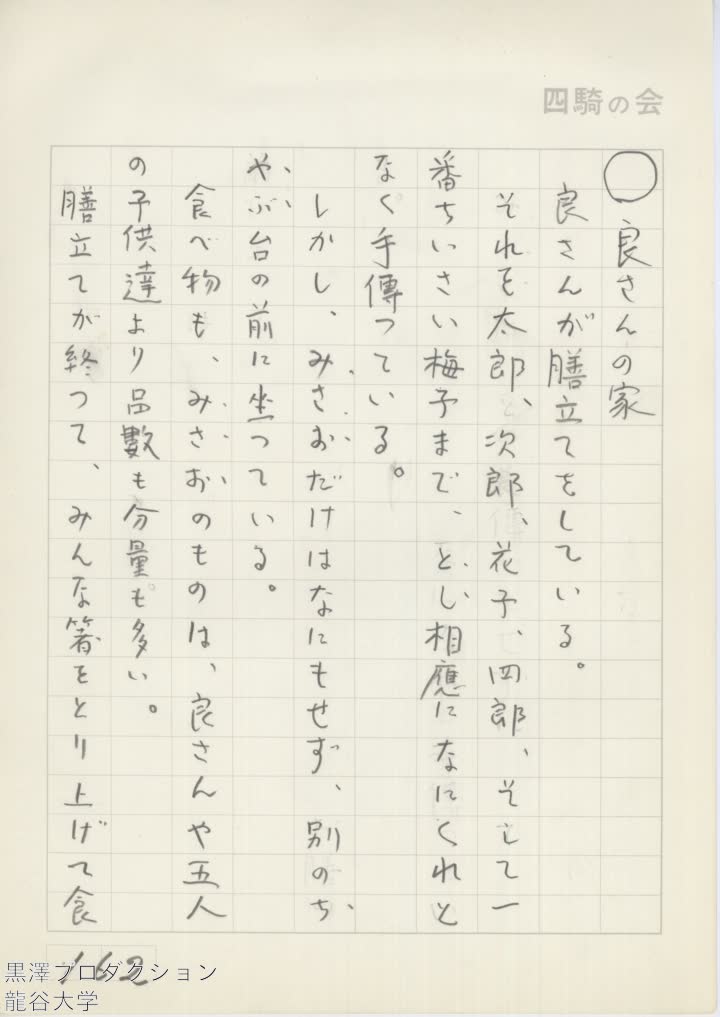 四騎の会
○良さんの家
良さんが膳立てをしている。
それを太郎、次郎、花子、四郎、そして一
番ちいさい梅子まで、とし相應になにくれと
なく手傳つている。
しかし、みさおだけはなにもせず、別のち
やぶ台の前に坐つている。
食べ物も、みさおのものは、良さんや五人
の子供達より品數も分量も多い。
膳立てが終つて、みんな箸をとり上げて食
162
黒澤プロダクション
龍谷大学